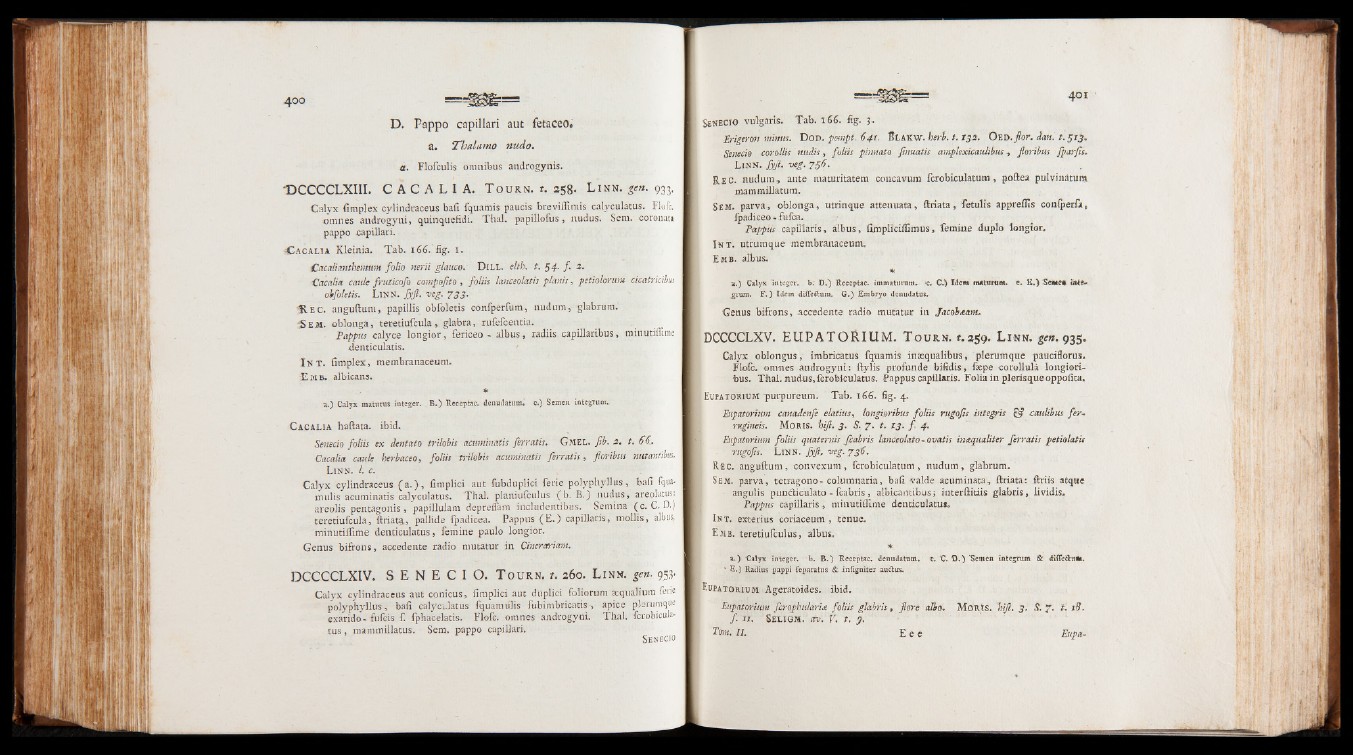 400
D. Pappo capillari aut ſetaceo.
a. Thalamo nudo.
a. Floſculis omnibus androgynis.
DCCCCLXIII. CACALIA. TOURN. t. 258. LINN. gen. 933.
Calyx ſimplex cylindraceus baſi ſquamis paucis breviſſimis calyculatus. Floſc.
omnes androgyni, quinquefidi. Thal. papilloſus, nudus. Sem. coronata
pappo capillari.
CACALIA Kleinia. Tab. 166. fig. 1.
Cacalianthemum folio nerii glauco. DILL. elth. t. 54. f. 2.
Cacalia caule fruticoſo compoſito, foliis lanceolatis planis, petiolorum cicatricibus
obſoletis. LINN. ſyſt. veg. 733.
REC. anguſtum, papillis obſoletis conſperſum, nudum, glabrum.
SEM. oblonga, teretiuſcula, glabra, rufeſcentia.
Pappus calyce longior, ſericeo - albus, radiis capillaribus, minutiſſime
denticulatis.
INT. ſimplex, membranaceum.
EMB. albicans.
*
a.) Calyx maturus integer. B.) Receptac. denudatum. c.) Semen integrum.
CACALIA haſtata. ibid.
Senecio foliis ex dentato trilobis acuminatis ſerratis. GMEL. ſib. 2. t. 66.
Cacalia caule herbaceo, foliis trilobis acuminatis ſerratis, floribus nutantibus.
LINN. l. c.
Calyx cylindraceus (a.), ſimplici aut ſubduplici ſerie polyphyllus, baſi ſqua-
mulis acuminatis calyculatus. Thal. planiuſculus (b. B.) nudus, areolatus:
areolis pentagonis, papillulam depreſſam includentibus. Semina (c. C. D.)
teretiuſcula, ſtriata, pallide ſpadicea. Pappus (E.) capillaris, mollis, albus,
minutiſſime denticulatus, ſemine paulo longior.
Genus bifrons, accedente radio mutatur in Cinerariam.
DCCCCLXIV. SENECIO. TOURN. t. 260. LINN. gen. 953.
Calyx cylindraceus aut conicus, ſimplici aut duplici foliorum æqualium ſerie
polyphyllus, baſi calyculatus ſquamulis ſubimbricatis, apice plerumque
exarido-fuſcis ſ. ſphacelatis. Floſc. omnes androgyni. Thal. ſcrobicula-
tus, mammillatus. Sem. pappo capillari.
SENECIO
401
SENECIO vulgaris. Tab. 166. fig. 3.
Erigeron minus. DOD. pempt. 641. BLAKW. herb. t. 132. OED. flor. dan. t. 513.
Senecio corollis nudis, foliis pinnato ſinuatis amplexicaulibus, floribus ſparſis.
LINN. ſyſt. veg. 756.
REC. nudum, ante maturitatem concavum ſcrobiculatum, poſtea pulvinatum
mammillatum.
SEM. parva, oblonga, utrinque attenuata, ſtriata, ſetulis appreſſis conſperſa,
ſpadiceo-fuſca.
Pappus capillaris, albus, ſimpliciſſimus, ſemine duplo longior.
INT. utrumque membranaceum.
EMB. albus.
*
a.) Calyx integer. b. D.) Receptac. immaturum. c. C.) Idem maturum. e. E.) Semen inte-
grum. F.) Idem diſſectum. G.) Embryo denudatus.
Genus bifrons, accedente radio mutatur in Jacobæam.
DCCCCLXV. EUPATORIUM. TOURN. t. 259. LINN. gen. 935.
Calyx oblongus, imbricatus ſquamis inæqualibus, plerumque pauciflorus.
Floſc. omnes androgyni: ſtylis profunde bifidis, ſæpe corollulâ longiori-
bus. Thal. nudus, ſcrobiculatus. Pappus capillaris. Folia in plerisque oppoſita.
EUPATORIUM purpureum. Tab. 166. fig. 4.
Eupatorium canadenſe elatius, longioribus foliis rugoſis integris & caulibus fer-
rugineis. MORIS. hiſt. 3. S. 7. t. 13. f. 4.
Eupatorium foliis quaternis ſcabris lanceolato-ovatis inæqualiter ſerratis petiolatis
rugoſis. LINN. ſyſt. veg. 736.
REC. anguſtum, convexum, ſcrobiculatum, nudum, glabrum.
SEM. parva, tetragono-columnaria, baſi valde acuminata, ſtriata: ſtriis atque
angulis puncticulato-ſcabris, albicantibus; interſtitiis glabris, lividis.
Pappus capillaris, minutiſſime denticulatus.
INT. exterius coriaceum, tenue.
EMB. teretiuſculus, albus.
*
a.) Calyx integer. b. B.) Receptac. denudatum. c. C. D.) Semen integrum & diſſectum.
E.) Radius pappi ſeparatus & inſigniter auctus.
EUPATORIUM Ageratoides. ibid.
Eupatorium ſcrophulariæ foliis glabris, flore albo. MORIS. hiſt. 3. S. 7. t. 18.
f. 11. SELIGM. av. V. t. 9.
Tom. II. Eee Eupa-